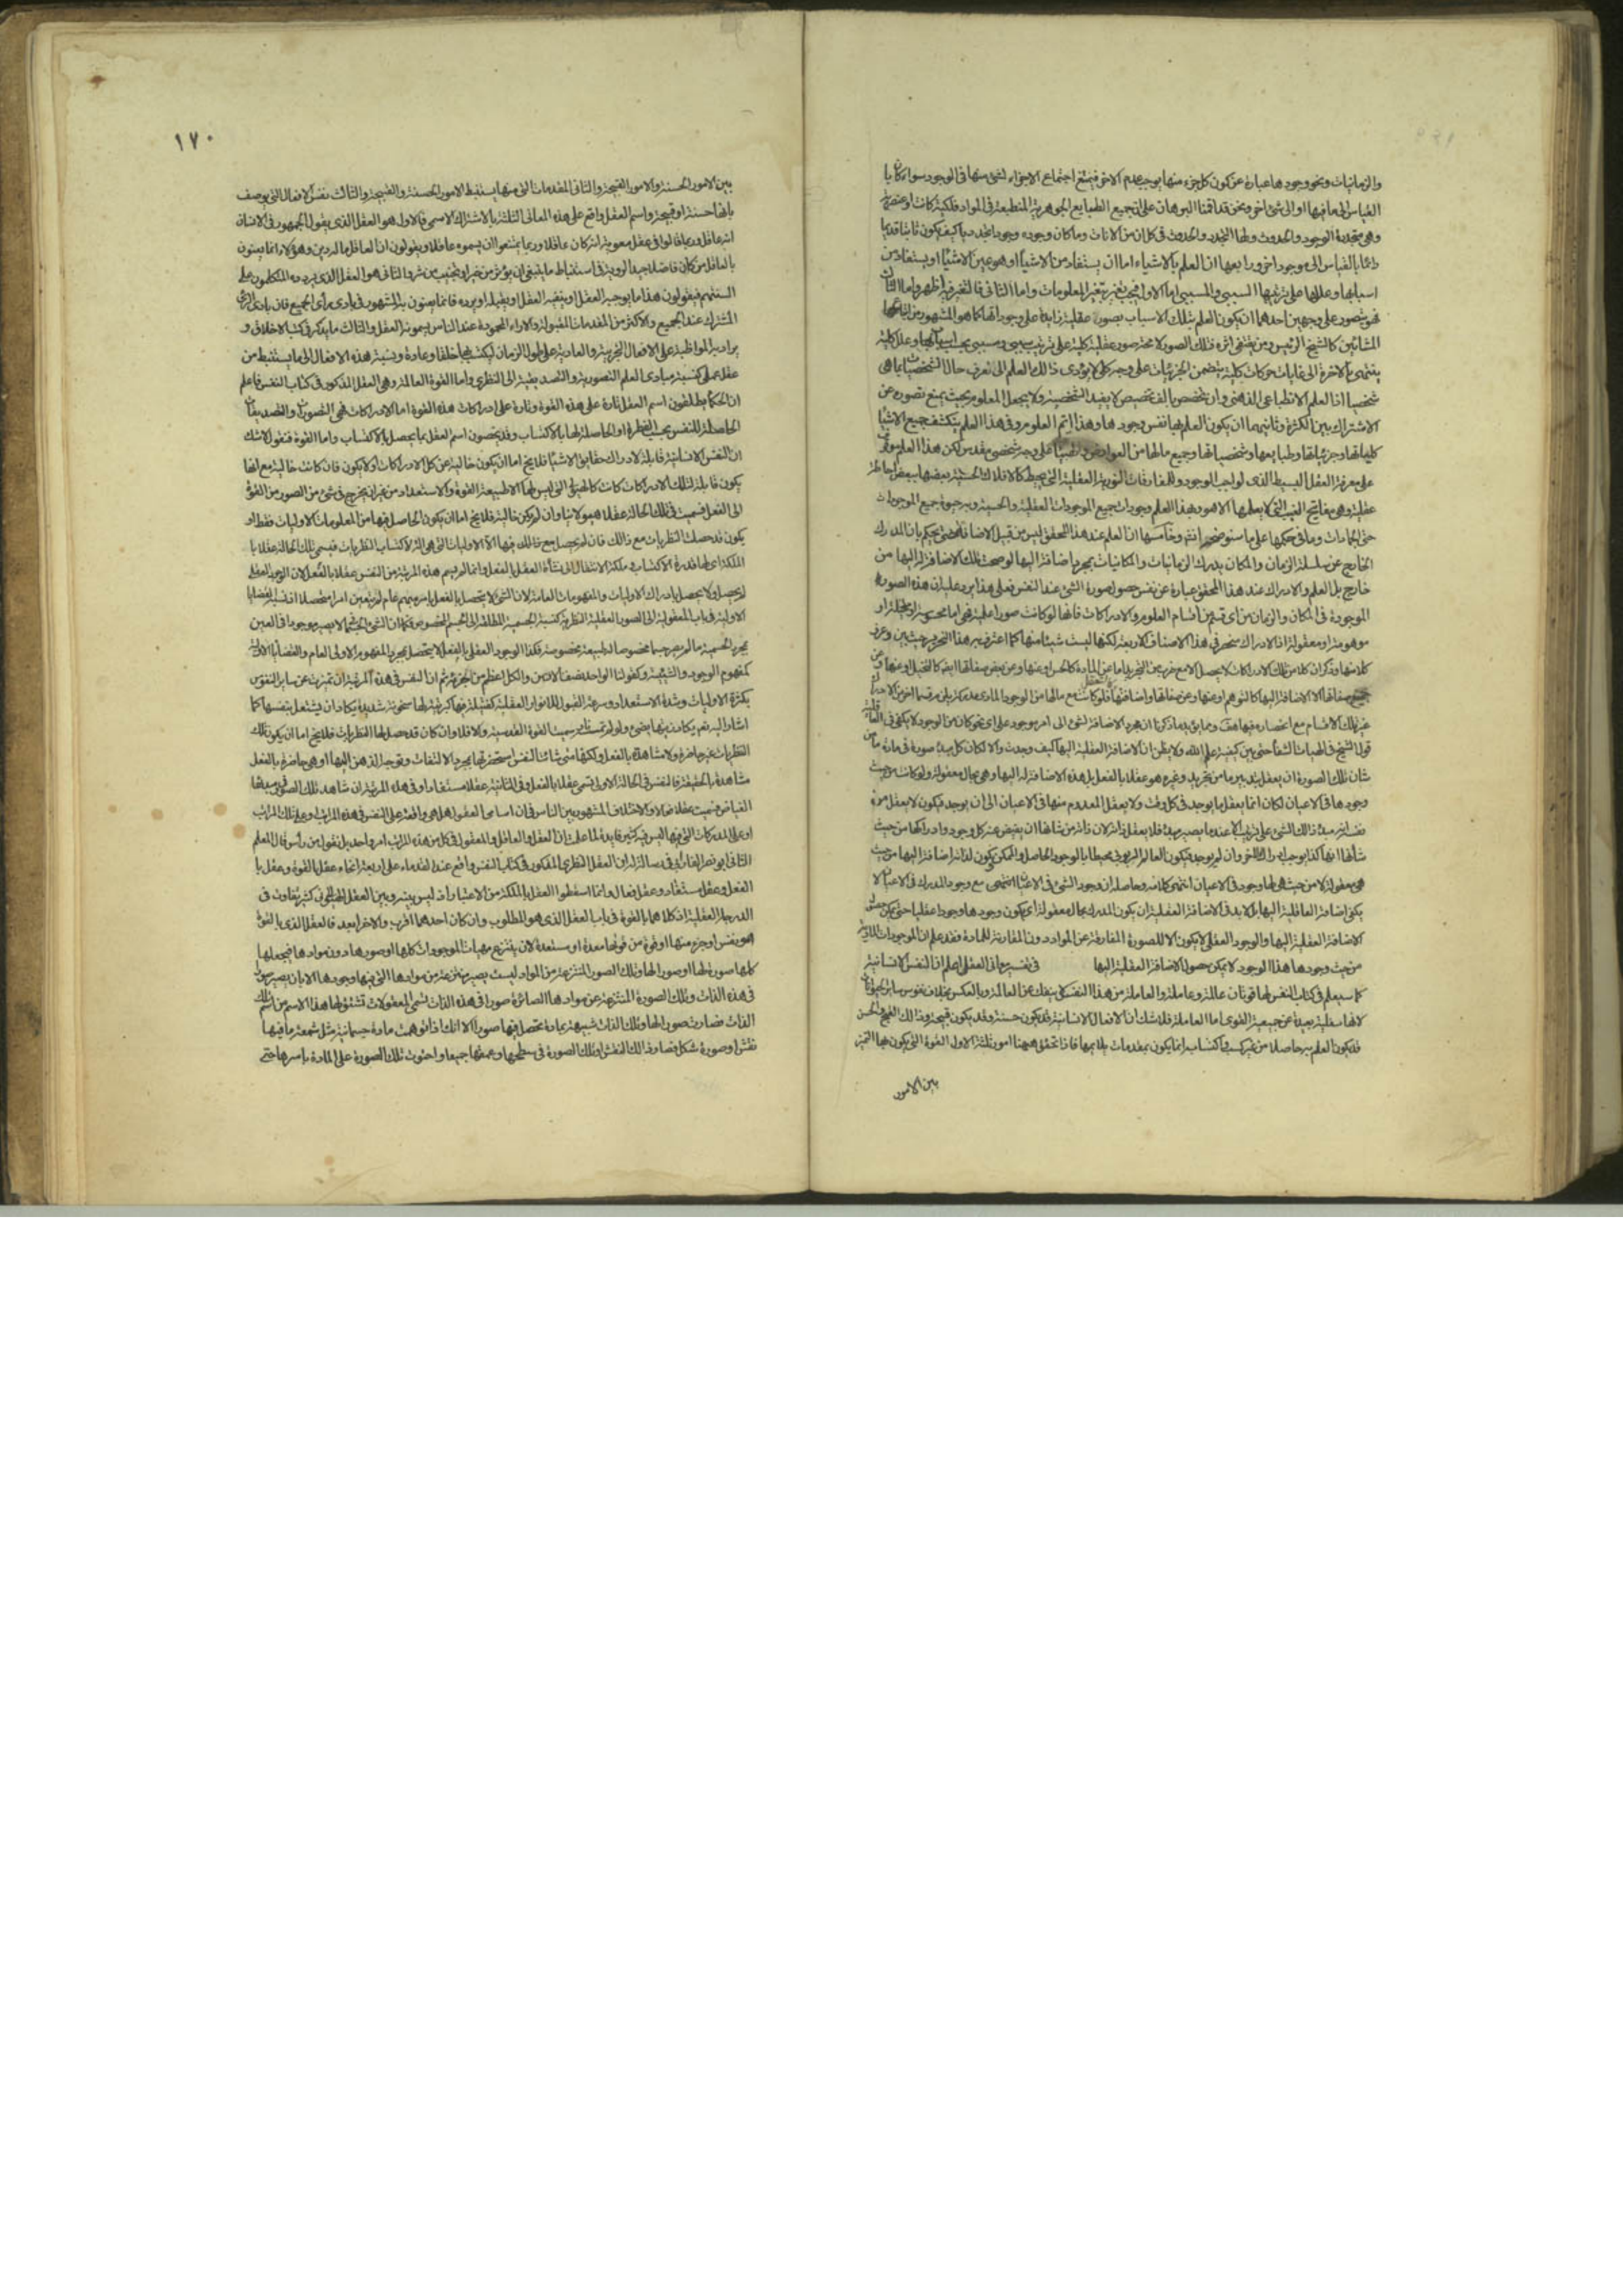 والزمانيات ونحو وجودها عبارة عن كون كل جزء منها يوجب عدم الاخر فيمتنع اجتماع الاجزاء لشئ منها في الوجود سواء كان با
القياس الى ما فيها او الى شئ اخر ونحن قد اقمنا البرهان على ان جميع الطبايع الجوهرية المنطبعة في المواد فلكية كانت او عنصرية
وهي متجددة الوجود والحدوث ولها التجدد والحدوث في كل ان من الانات وما كان وجوده وجودا تجدديا كيف يكون ثابتا قديما
دائما بالقياس الى موجود اخر ورابعها ان العلم بالاشياء اما ان يستفاد من الاشياء او هو عين الاشياء او يستفاد من
اسبابها وعللها على ترتيبها السببي والمسببي اما الاول فيجب تغيره بتغير المعلومات واما الثاني فالتغير فيه اظهر واما الثالث
فهو يتصور على وجهين احدهما ان يكون العلم بتلك الاسباب بصور عقلية زايدة على وجوداتها كما هو المشهور من اتباع
المشائين كالشيخ الرئيس ومن يقتفى اثره فتلك الصور لا محة صور عقلية كلية على ترتيب سببي ومسببي
ينتهى بالاخرة الى غايات حركات كلية يتضمن الجزئيات على وجه كلي لا يؤدى ذالك العلم الى تعرف حال الشخصيات بما هي
شخصيات اذ العلم الانطباعي الذهني وان تخصص بالف تخصيص لا يفيد الشخصية ولا يجعل المعلوم بحيث يمنع تصوره عن
الاشتراك بين الكثرة وثانيهما ان يكون العلم بها نفس وجودها وهذا اتم العلوم وفي هذا العلم ينكشف جميع الاشياء
كلياتها وجزئياتها وطبايعها وشخصياتها وجميع مالها من العوارض على وجه شخصي مقدس لكن هذا العلم موقوف
على معرفة العقل البسيط الذى لواجب الوجود وللمفارقات النورية العقلية التي يحيط كالافلاك الحسية بعضها ببعض احاطة
عقلية وهي مفاتيح الغيب التي لا يعلمها الا هو وبهذا العلم وجودات جميع الموجودات العقلية والحسية وبه حيوة جميع الموجودات
حتى الجمادات وما في حكمها على ما سنوضحه انشم وخامسها ان العلم عند هذا المحقق ليس من قبيل الاضافة حتى يحكم بان المدرك
الخارج عن سلسلة الزمان والمكان يدرك الزمانيات والمكانيات بمجرد اضافة اليها لو صحت تلك الاضافة له اليها من
خارج بل العلم والادراك عند هذا المحقق عبارة عن نفس حصول صورة الشئ عند النفس فعلى هذا يرد عليه ان هذه الصورة
الموجودة في المكان والزمان من اى قسم من اقسام العلوم والادراكات فانها لو كانت صورا علمية فهي اما محسوسة او متخيلة او
موهومة او معقولة اذ الادراك منحصر في هذا الاصناف الاربعة لكنها ليست شيئا منها كما اعترف به هذا النحرير حيث بين وعرف
كلا منها وذكر ان كلا من تلك الادراكات لا يحصل الا مع ضرب من التجريد اما عن المادة كالحس او عنها وعن بعض صفاتها ايض كالتخيل او عنها وعن
جميع صفاتها الا الاضافة اليها كالتوهم او عنها وعن صفاتها واضافتها فلو كانت مع مالها من الوجود المادى مدركة
غير تلك الاقسام مع انحصاره فيها هف ومما يؤيد ما ذكرنا ان مجرد الاضافة لشئ الى امر موجود على اى نحو كان من الوجود لا يكفى في العاقلية
قول الشيخ في الهيات الشفا حتى بين كيفية علم الله ولا يظن ان الاضافة العقلية اليها كيف وجدت والا لكان كل مبدء صورة في مادة ما من
شان تلك الصورة ان يعقل بتدبير ما من تجريد وغيره هو عقلا بالفعل بل هذه الاضافة له اليها وهي بحال معقولة ولو كانت من حيث
وجودها في الاعيان لكان انما يعقل ما يوجد في كل وقت ولا يعقل المعدوم منها في الاعيان الى ان يوجد فيكون لا يعقل من
نفسه انه مبدء ذالك الشئ على ترتيب الا عند ما يصير مبدء فلا يعقل ذاته لان ذاته من شانها ان يفيض عنه كل وجود وادراكها من حيث
شانها انها كذا يوجب ادراك الاخر وان لم يوجد فيكون العالم الربوبي محيطا بالوجود الحاصل والممكن ويكون لذاته اضافة اليها من حيث
هي معقولة لا من حيث هي لها وجود في الاعيان انتهى كلامه وحاصله ان وجود الشئ في الاعيان مع وجود المدرك في الاعيان لا
يكفى اضافة العاقلية اليها بل لابد في الاضافة العقلية ان يكون المدرك بحال معقولة اى يكون وجودها وجودا عقليا حتى يمكن حصول
الاضافة العقلية اليها والوجود العقلي لا يكون الا للصورة المفارقة عن المواد دون المقارنة للمادة وقد علم ان الموجودات المادية
من حيث وجودها هذا الوجود لا يمكن حصول الاضافة العقلية اليها في تفسير معانى العقل اعلم ان النفس الانسانية
كما سيعلم في كتاب النفس لها قوتان عالمة وعاملة والعاملة من هذا النفس لا ينفك عن العالمة وبالعكس بخلاف نفوس ساير الحيوانات
لانها سفلية بعيدة عن جمعية القوى اما العاملة فلا شك ان الافعال الانسانية قد يكون حسنة وقد يكون قبيحة وذالك القبح والحسن
قد يكون العلم به حاصلا من غير كسب واكتساب انما يكون بمقدمات يلايمها فاذا تحقق ههنا امور ثلثة الاول القوة التي يكون بها التميز
بين الامور
١٧٠
بين الامور الحسنة والامور القبيحة والثانى المقدمات التي منها يستنبط الامور الحسنة والقبيحة والثالث نفس الافعال التي يوصف
بانها حسنة او قبيحة واسم العقل واقع على هذه المعانى الثلثة بالاشتراك الاسمى فالاول هو العقل الذى يقول الجمهور في الانسان
انه عاقل وربما قالوا في عقل معوية انه كان عاقلا وربما يمتنعوا ان يسموه عاقلا ويقولون ان العاقل ماله دين وهؤلاء انما يعنون
بالعاقل من كان فاضلا جيد الروية في استنباط ما ينبغى ان يؤثر من خير او يجتنب من شر والثاني هو العقل الذى يردده المتكلمون على
السنتهم فيقولون هذا ما يوجبه العقل او ينفيه العقل او يقبله او يرده فانما يعنون به المشهور في بادى راى الجميع فان بادى الراى
المشترك عند الجميع والاكثر من المقدمات المقبولة والاراء المحمودة عند الناس يسمونه العقل والثالث ما يذكر في كتب الاخلاق و
يراد به المواظبة على الافعال التجربية والعادية على طول الزمان ليكتسب بها خلقا وعادة ونسبة هذه الافعال الى ما يستنبط من
عقل عملى كنسبة مبادى العلم التصورية والتصديقية الى النظرى واما القوة العالمة وهي العقل المذكور في كتاب النفس فاعلم
ان الحكماء يطلقون اسم العقل تارة على هذه القوة وتارة على ادراكات هذه القوة اما الادراكات فهي التصورات والتصديقات
الحاصلة للنفس بحسب الفطرة او الحاصلة لها بالاكتساب وقد يخصون اسم العقل بما يحصل بالاكتساب واما القوة فنقول لا شك
ان النفس الانسانية قابلة لادراك حقايق الاشياء فلا يخ اما ان يكون خالية عن كل الادراكات او لا يكون فان كانت خالية مع انها
يكون قابلة لتلك الادراكات كانت كالهيولى التي ليس لها الا طبيعة القوة والاستعداد من غير ان يخرج في شئ من الصور من القوة
الى الفعل فسميت في تلك الحالة عقلا هيولانيا وان لم يكن خالية فلا يخ اما ان يكون الحاصل فيها من المعلومات الاوليات فقط او
يكون قد حصلت النظريات مع ذالك فان لم يحصل مع ذالك فيها الا الاوليات التي هي الة لاكتساب النظريات فيسمى تلك الحالة عقلا با
الملكة اى لها قدرة الاكتساب وملكة الانتقال الى نشأة العقل بالفعل وانما لم يسم هذه المرتبة من النفس عقلا بالفعل لان الوجود العقلى
لم يحصل ولا يحصل بادراك الاوليات والمفهومات العامة لان الشئ لا يتحصل بالفعل بامر مبهم عام لم يتعين امرا متحصلا اذ نسبة القضايا
الاولية في باب المعقولية الى الصور العقلية النظرية كنسبة الجسمية المطلقة الى الجسم المخصوص فكما ان الشئ لا يصير موجودا في العين
بمجرد الجسمية ما لم يصر جسما مخصوصا له طبيعة مخصوصة فكذا الوجود العقلى بالفعل لا يتحصل بمجرد المفهوم الاولى العام والقضايا الاولية
كمفهوم الوجود والشيئية وكقولنا الواحد نصف الاثنين والكل اعظم من الجزء ثم ان النفس في هذه المرتبة ان تميزت عن ساير النفوس
بكثرة الاوليات وشدة الاستعداد وسرعة القبول للانوار العقلية كفتيلة فيها كبريتية لها سخونة شديدة يكاد ان يشتعل بنفسها كما
اشار اليه تع يكاد زيتها يضئ ولو لم تمسسه نار سميت القوة القدسية والا فلا وان كان قد حصل لها النظريات فلا يخ اما ان يكون تلك
النظريات غير حاضرة ولا مشاهدة بالفعل ولكنها متى شائت النفس استحضرتها بمجرد الالتفات وتوجه الذهن اليها او هي حاضرة بالفعل
مشاهدة بالحقيقة فالنفس في الحالة الاولى تسمى عقلا بالفعل وفي الثانية عقلا مستفادا وفي هذه المرتبة ان شاهد تلك الصور في مبدئها
الفياض سميت عقلا فعالا والاختلاف المشهور بين الناس في ان اسامى العقول هل هي واقعة على النفس في هذه المراتب او على تلك المراتب
او على المدركات التي فيها ليس فيه كثير فايدة لما علمت ان العقل والعاقل والمعقول في كل من هذه المراتب امر واحد بل نقول من رأس قال المعلم
الثانى ابو نصر الفارابى في رسالة له ان العقل النظرى المذكور في كتاب النفس واقع عند القدماء على اربعة انحاء عقل بالقوة وعقل با
الفعل وعقل مستفاد وعقل فعال وانما اسقطوا العقل بالملكة من الاعتبار اذ ليس بينه وبين العقل الهيولانى كثير تفاوت في
الدرجة العقلية اذ كلاهما بالقوة في باب العقل الذى هو المطلوب وان كان احدهما اقرب والاخر ابعد فالعقل الذى بالقوة
هو نفس او جزء منها او قوة من قوتها معدة او مستعدة لان ينتزع مهيات الموجودات كلها او صورها دون موادها فيجعلها
كلها صورة لها او صور الها وتلك الصور المنتزعة من المواد ليست يصير منتزعة من موادها التي فيها وجودها الا بان يصير صورا
في هذه الذات وتلك الصورة المنتزعة عن موادها الصائرة صورا في هذه الذات تسمى المعقولات اشتق لها هذا الاسم من اسم تلك
الذات فصارت صورا لها وتلك الذات شبيهة بمادة تحصل فيها صور الا انك اذا توهمت مادة جسمانية مثل شمعة ما فيها
نقش او صورة شكل فصار ذالك النقش او تلك الصورة في سطحها وعمقها جميعا واحتوت تلك الصورة على المادة باسرها حتى